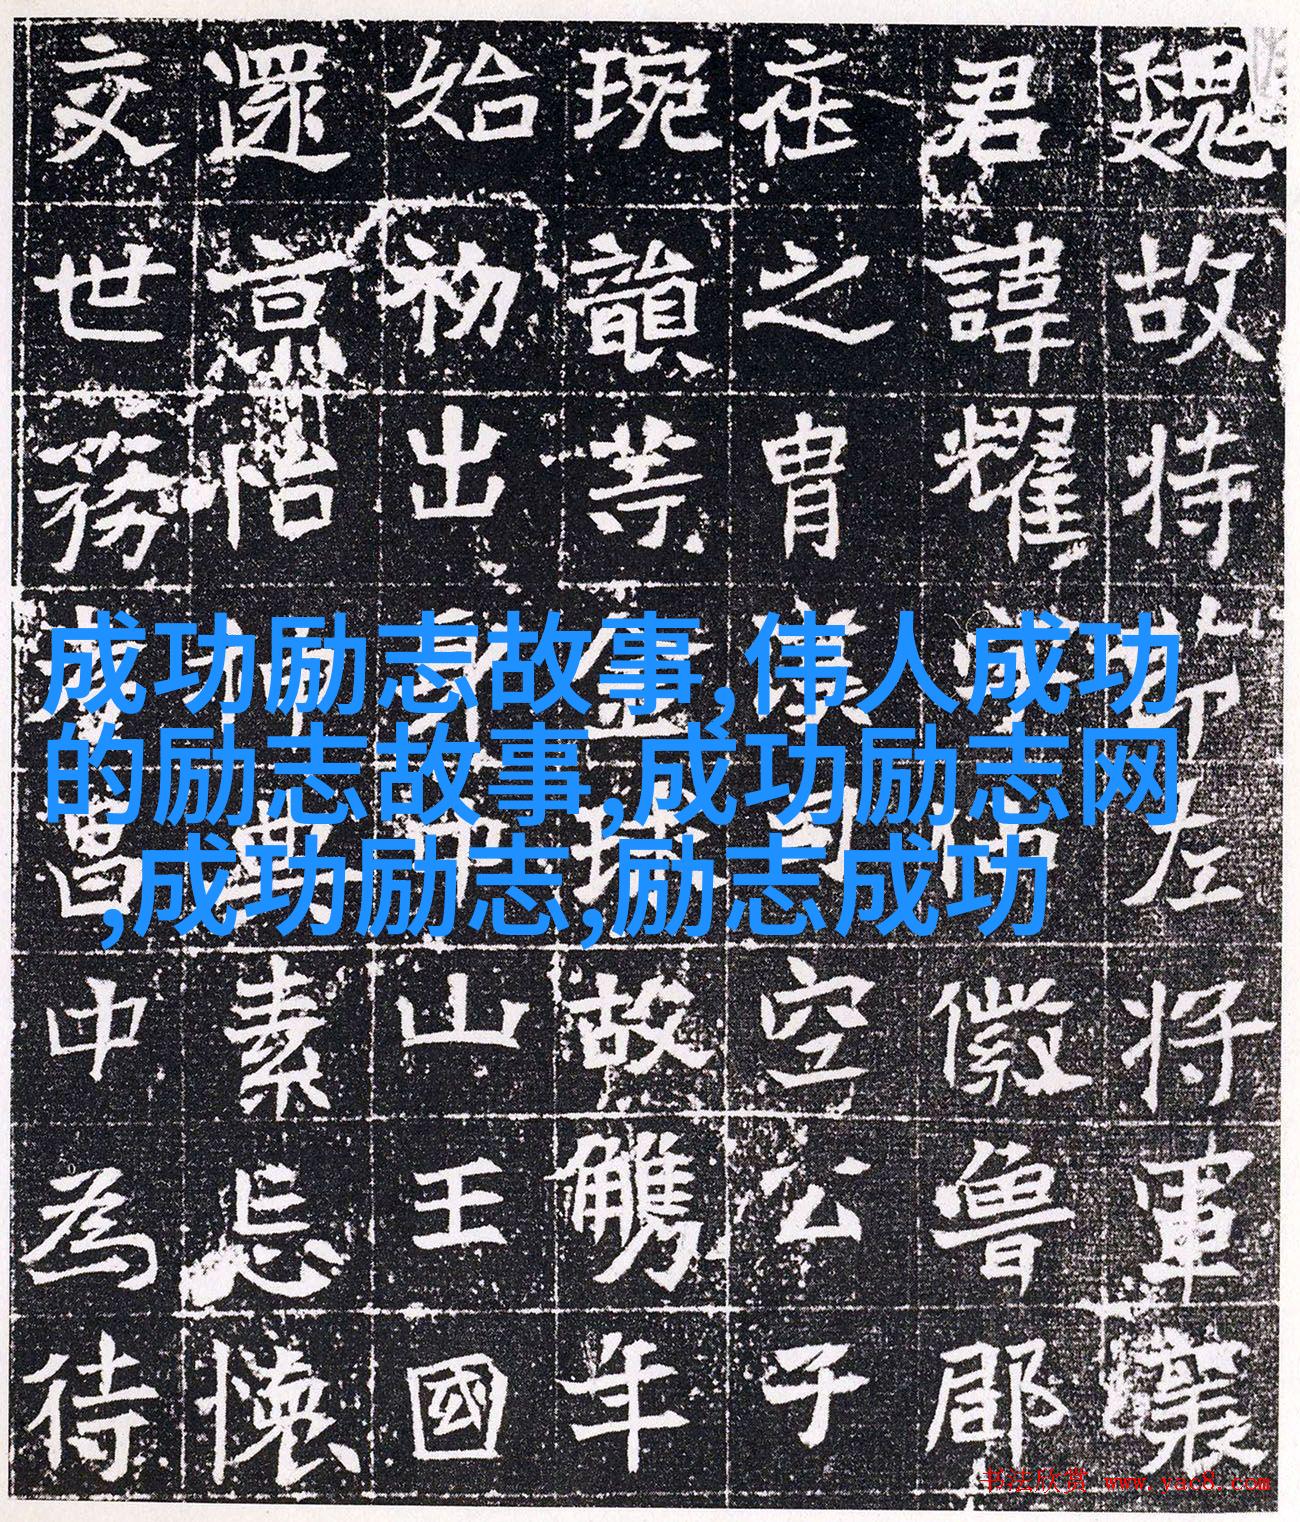 成功励志故事,伟人成功
的励志故事,成功励志网
,成功励志,励志成功
魏故持左將軍襄
君諱耀徽魯郡
在之胄司空公子
琬韻等故觿年
始初出身山王國
還京怡神典素忘懷
交世務中為待
书法欣赏 www.yac8.com